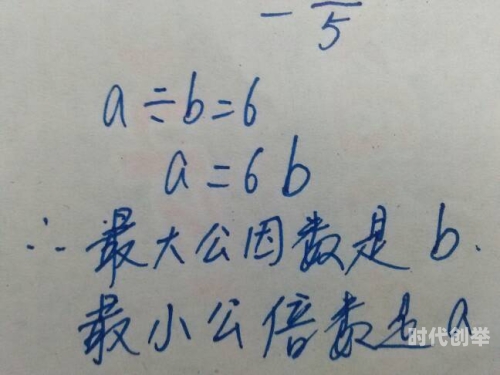 - —
5
a÷b=6
a=6b
∴最大公因数是b.
最小公倍数是a
时代创举